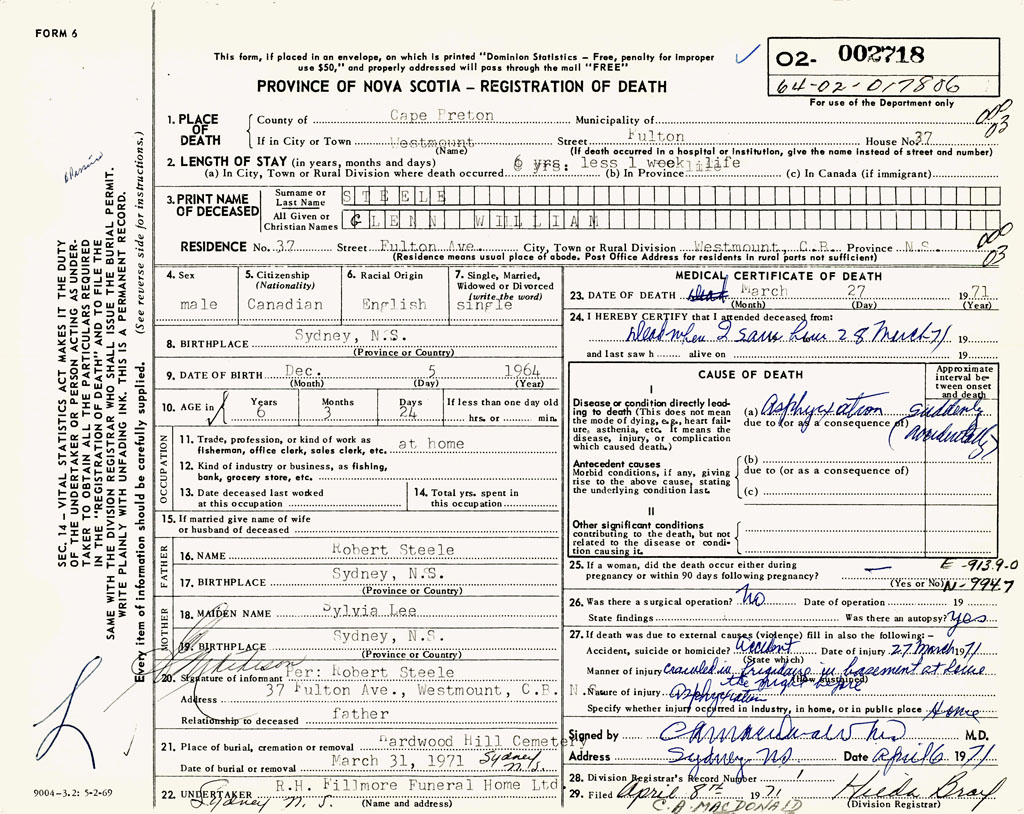 FORM 6
This form, if placed in an envelope, on which is printed "Dominion Statistics – Free, penalty for improper
use $50," and properly addressed will pass through the mail "FREE"
PROVINCE OF NOVA SCOTIA – REGISTRATION OF DEATH
02- 002718
64-02-017806
For use of the Department only
SEC. 14 – VITAL STATISTICS ACT MAKES IT THE DUTY
OF THE UNDERTAKER OR PERSON ACTING AS UNDER-
TAKER TO OBTAIN ALL THE PARTICULARS REQUIRED
IN THE "REGISTRATION OF DEATH" AND TO FILE THE
SAME WITH THE DIVISION REGISTRAR WHO SHALL ISSUE THE BURIAL PERMIT.
WRITE PLAINLY WITH UNFADING INK. THIS IS A PERMANENT RECORD.
Every item of information should be carefully supplied. (See reverse side for instructions.)
1. PLACE OF DEATH
County of Cape Breton Municipality of
If in City or Town Westmount Street Fulton House No. 37
(Name) (If death occurred in a hospital or institution, give the name instead of street and number)
03
2. LENGTH OF STAY (in years, months and days) 6 yrs. less 1 week life
(a) In City, Town or Rural Division where death occurred (b) In Province (c) In Canada (if immigrant)
3. PRINT NAME OF DECEASED
Surname or Last Name STEELE
All Given or Christian Names GLENN WILLIAM
RESIDENCE No. 37 Street Fulton Ave. City, Town or Rural Division Westmount, C.B. Province N.S.
(Residence means usual place of abode. Post Office Address for residents in rural parts not sufficient)
03
4. Sex male
5. Citizenship (Nationality) Canadian
6. Racial Origin English
7. Single, Married, Widowed or Divorced (write the word) single
8. BIRTHPLACE Sydney, N.S.
(Province or Country)
9. DATE OF BIRTH Dec. 5 1964
(Month) (Day) (Year)
10. AGE in Years 6 Months 3 Days 24 If less than one day old hrs. or min.
OCCUPATION
11. Trade, profession, or kind of work as fisherman, office clerk, sales clerk, etc. at home
12. Kind of industry or business, as fishing, bank, grocery store, etc.
13. Date deceased last worked at this occupation
14. Total yrs. spent in this occupation
15. If married give name of wife or husband of deceased
FATHER
16. NAME Robert Steele
17. BIRTHPLACE Sydney, N.S.
(Province or Country)
MOTHER
18. MAIDEN NAME Sylvia Lee
19. BIRTHPLACE Sydney, N.S.
(Province or Country)
20. Signature of informant Per: Robert Steele
Address 37 Fulton Ave., Westmount, C.B. N.S.
Relationship to deceased father
21. Place of burial, cremation or removal Hardwood Hill Cemetery
Sydney N.S.
Date of burial or removal March 31, 1971
22. UNDERTAKER R.H. Fillmore Funeral Home Ltd
Sydney N. S. (Name and address)
9004-3.2: 5-2-69
MEDICAL CERTIFICATE OF DEATH
23. DATE OF DEATH March 27 1971
(Month) (Day) (Year)
24. I HEREBY CERTIFY that I attended deceased from:
Dead when I saw him 28 March 71 19
and last saw h alive on 19
CAUSE OF DEATH
Approximate interval between onset and death
I
Disease or condition directly leading to death (This does not mean the mode of dying, e.g., heart failure, asthenia, etc. It means the disease, injury, or complication which caused death.)
(a) Asphyxiation suddenly
due to (or as a consequence of) (accidentally)
Antecedent causes
Morbid conditions, if any, giving rise to the above cause, stating the underlying condition last.
(b)
due to (or as a consequence of)
(c)
II
Other significant conditions contributing to the death, but not related to the disease or condition causing it.
25. If a woman, did the death occur either during pregnancy or within 90 days following pregnancy? –
(Yes or No)
E-913.9-0
N-994.7
26. Was there a surgical operation? No Date of operation 19
State findings Was there an autopsy? Yes
27. If death was due to external causes (violence) fill in also the following: –
Accident, suicide or homicide? Accident Date of injury 27 March 1971
(State which)
Manner of injury crawled in frigidaire in basement at home
(How sustained)
the night before
Nature of injury Asphyxiation
Specify whether injury occurred in industry, in home, or in public place Home
Signed by C A Macdonald MD M.D.
Address Sydney NS Date April 6 1971
28. Division Registrar's Record Number 1
29. Filed April 8TH 1971 Hilda Bray
C.A. MACDONALD (Division Registrar)